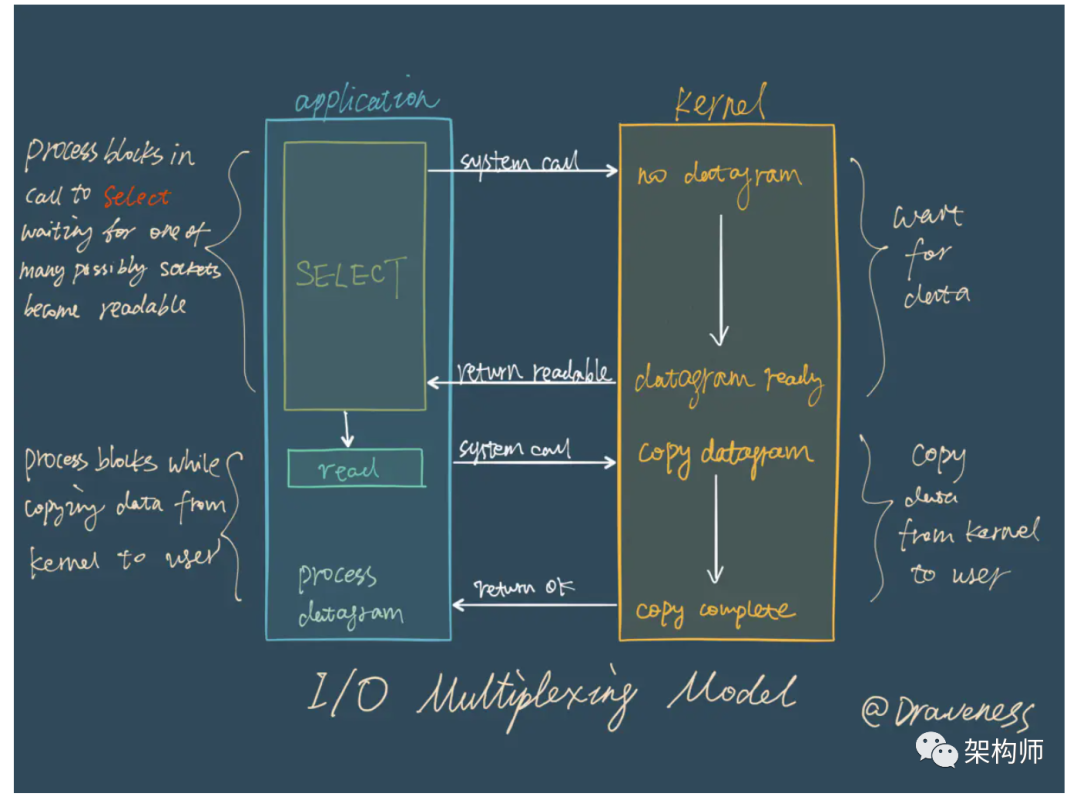 application
Kernel
process blocks in
call to select
waiting for one of
many possibly sockets
become readable
SELECT
system call
no datagram
wait
for
data
return readable
datagram ready
process blocks while
copying data from
kernel to user
read
system call
copy datagram
copy
data
from kernel
to user
process
datagram
return ok
copy complete
I/O Multiplexing Model
@Draveness
架构师